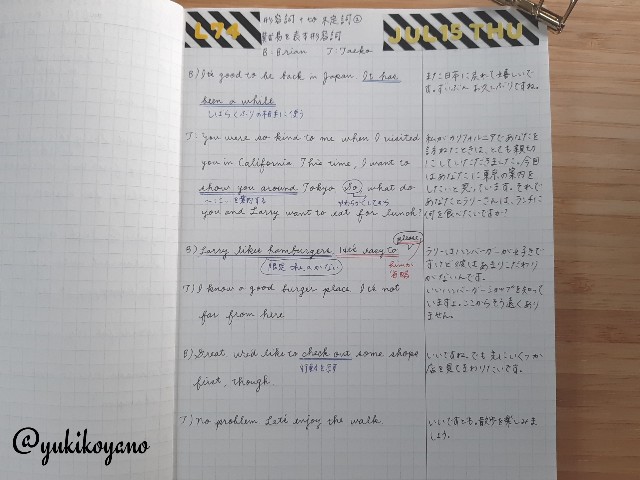 L74
形容詞+to 不定詞②
難易を表す形容詞
JUL 15 THU
B: Brian J: Taeko
B) It's good to be back in Japan. It has
been a while
しばらくぶりの相手に使う
また日本に戻れて嬉しいで
す。ずいぶんお久しぶりですね。
J) You were so kind to me when I visited
you in California This time, I want to
show you around Tokyo So what do
〜に…を案内する
やわらかくしてから
you and Larry want to eat for lunch?
私がカリフォルニアであなたを
訪ねたときは、とても親切
にしていただきました。今回
はあなたに東京の案内を
したいと思っています。それで
あなたとラリーさんは、ランチに
何を食べたいですか?
please
B) Larry likes hamburgers. He's easy to
himが
省略
ラリーはハンバーガーが好きで
すけど彼はあまりこだわり
がないんです。
J) I know a good burger place It's not
far from here
いいハンバーガーショップを知って
いますよ。ここからそう遠くあり
ません。
B) Great We'd like to check out some shops
first, though.
いいですね。でも先にいくつか
店を見てまわりたいです。
J) No problem Let's enjoy the walk.
いいですとも。散歩を楽しみま
しょう。
@yukikoyano